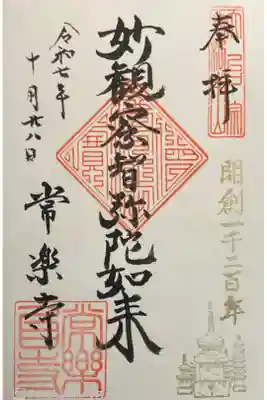 奉拝
開創一千二百年
妙観察智弥陀如来
令和七年
十月廿八日
常楽寺